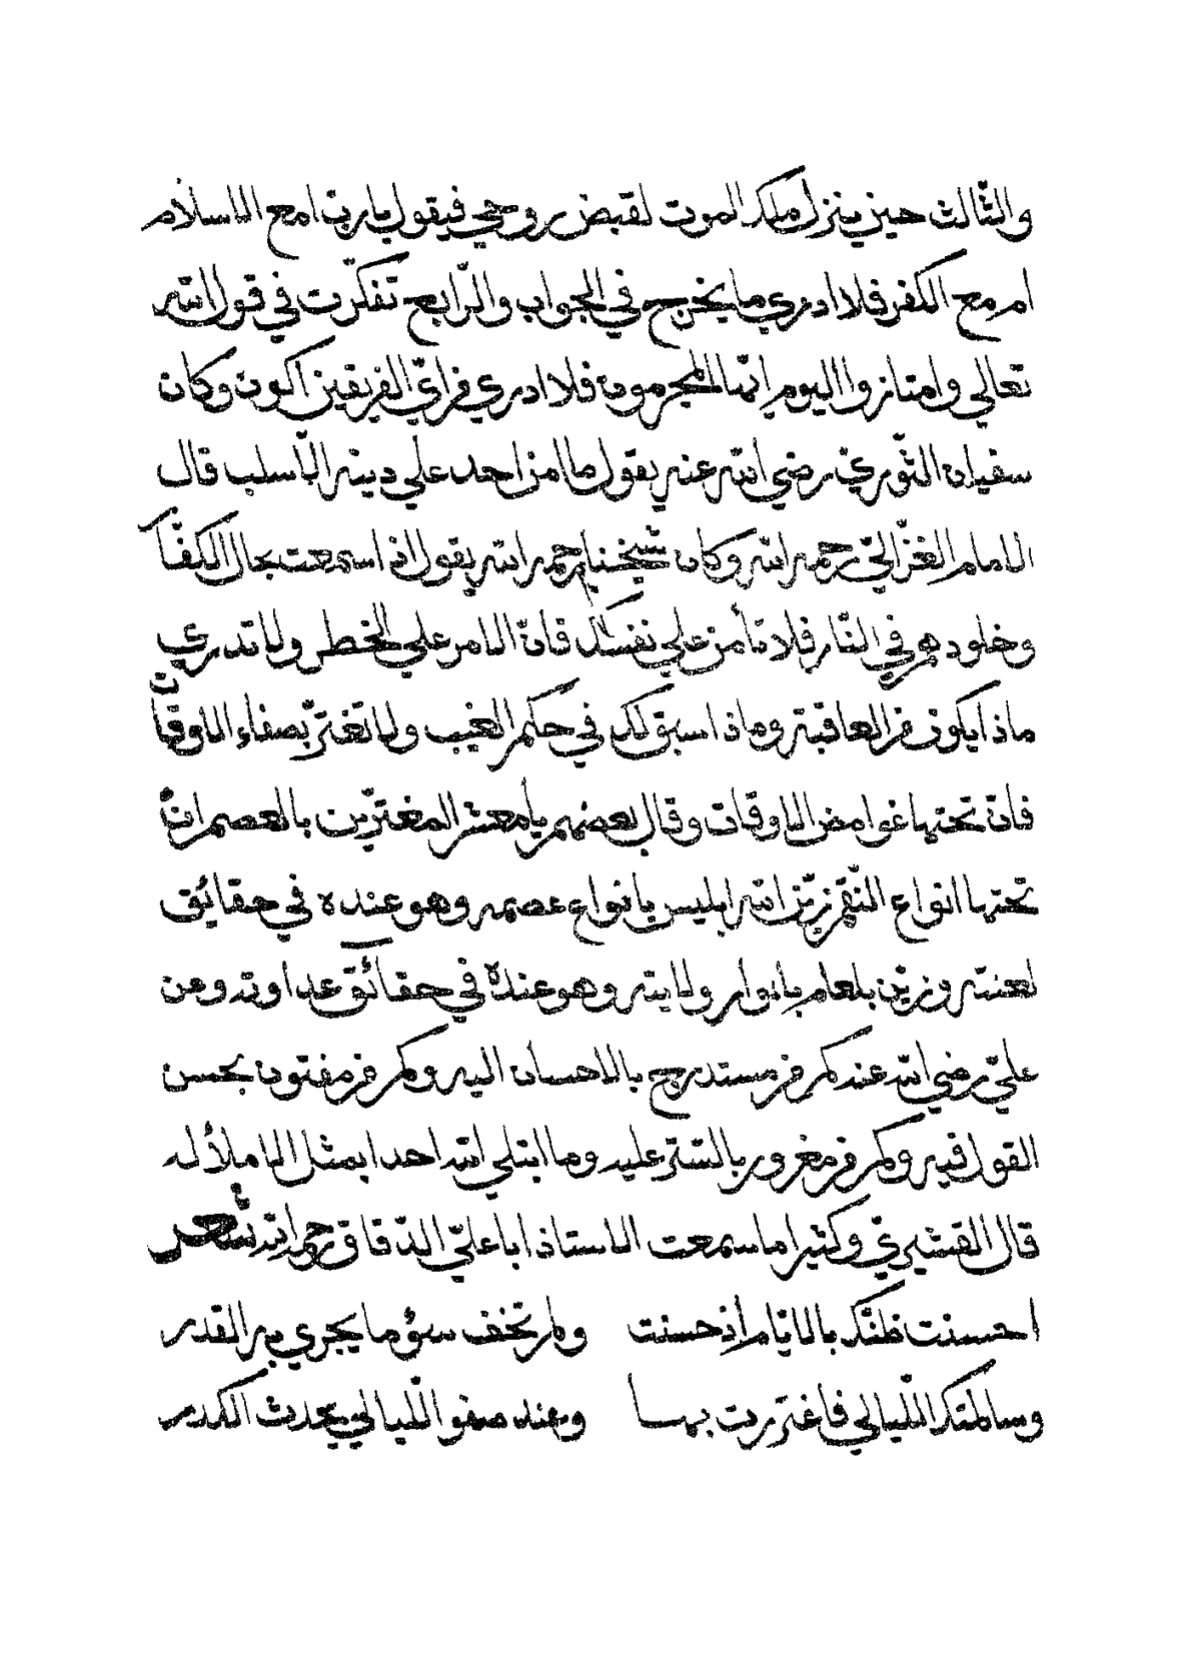 والثّالث حين ينزل ملك الموت لقبض روحي فيقول يا ربّ امع الاسلام
ام مع الكفر فلا ادري ما يخرج في الجواب والرّابع تفكّرت في قول الله
تعالي وامتازوا اليوم ايّها المجرمون فلا ادري من ايّ الفريقين اكون وكان
سفيان الثّوريّ رضي الله عنه يقول ما امن احد علي دينه الّا سلب قال
الامام الغزّاليّ رحمه الله وكان شيخنا رحمه الله يقول اذا سمعت بحال الكفّا
وخلودهم في النّار فلا تأمن علي نفسك فانّ الامر علي الخطر ولا تدري
ماذا يكون من العاقبة وماذا سبق لك في حكم الغيب ولا تغترّ بصفاء الاوقات
فانّ تحتها غوامض الاوقات وقال بعضهم يأمعشر المغترّين بالعصم انّ
تحتها انواع النّقم زيّن الله ابليس بانواع عصمه وهو عنده في حقايق
لعنته وزيّن بلعام بانوار ولايته وهو عنده في حقائق عداوته وعن
عليّ رضي الله عنه كم من مستدرج بالاحسان اليه وكم من مفتون بحسن
القول فيه وكم من مغرور بالسّتر عليه وما ابتلي الله احدا بمثل الاملأ له
قال القشيريّ وكثيرا ما سمعت الاستاذ ابا عليّ الدّقاق رحمه الله شعر
احسنت ظنّك بالايّام اذ حسنت ولم تخف سؤ ما يجري به القدر
وسالمتك اللّيالي فاغتررت بها وعند صفو اللّيالي يحدث الكدر